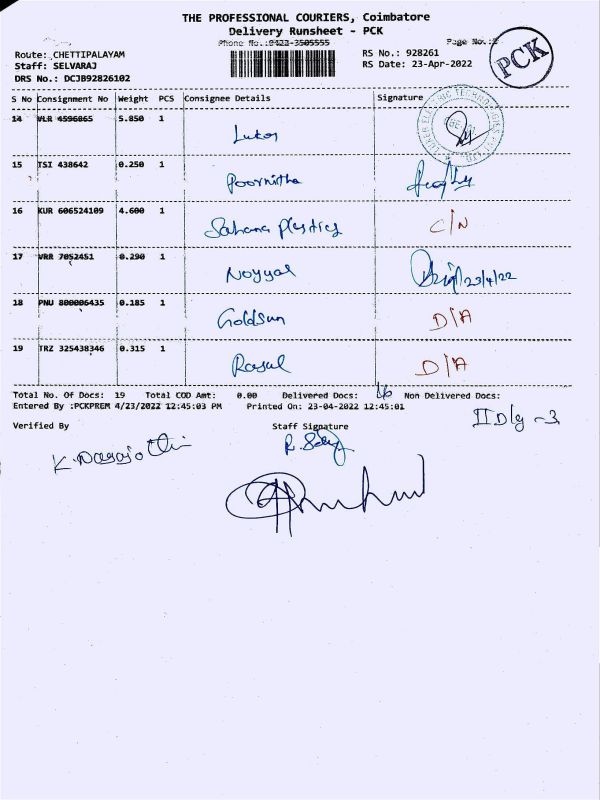 THE PROFESSIONAL COURIERS, Coimbatore
Delivery Runsheet - PCK
Phone No.:0422-3505555
Page No.:
PCK
Route: CHETTIPALAYAM
RS No.: 928261
Staff: SELVARAJ
RS Date: 23-Apr-2022
DRS No.: DCJB92826102
S No Consignment No Weight PCS Consignee Details Signature
14 VLR 4596865 5.850 1
Lukos
15 TSI 438642 0.250 1
Poornitha
16 KUR 606524109 4.600 1
Sahana plastics C/N
17 VRR 7052451 0.290 1
Noyyal 23/4/22
18 PNU 800006435 0.185 1
Goldsun D/A
19 TRZ 325438346 0.315 1
Rasul D/A
Total No. Of Docs: 19 Total COD Amt: 0.00 Delivered Docs: 16 Non Delivered Docs:
Entered By :PCKPREM 4/23/2022 12:45:03 PM Printed On: 23-04-2022 12:45:01
II Dly - 3
Verified By Staff Signature